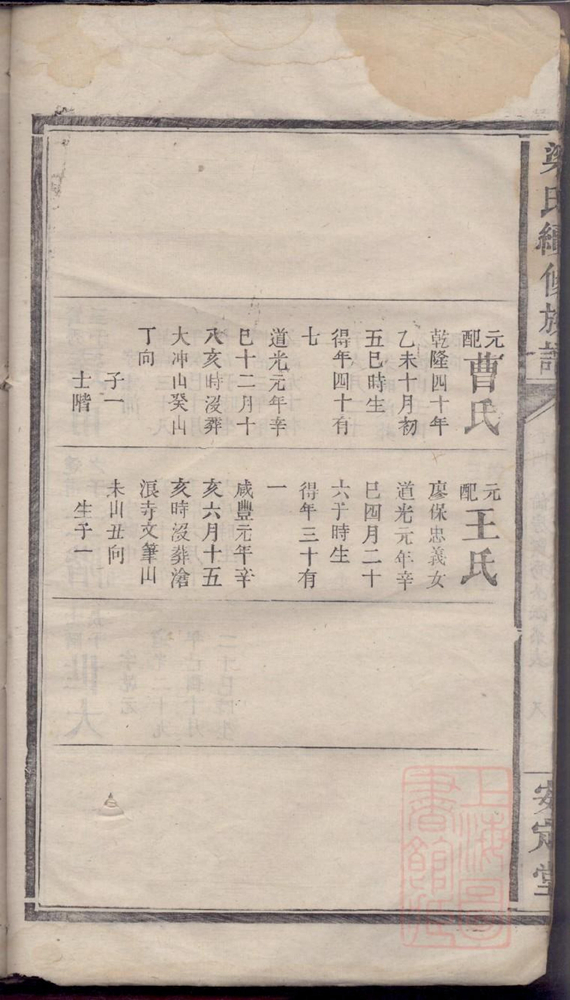 梁氏續修族譜
安定堂
元配曹氏
乾隆四十年
乙未十月初
五巳時生
得年四十有
七
道光元年辛
巳十二月十
八亥時沒葬
大冲山癸山
丁向
子一
士階
元配王氏
廖保忠義女
道光元年辛
巳四月二十
六子時生
得年三十有
一
咸豐元年辛
亥六月十五
亥時沒葬滄
浪寺文筆山
未山丑向
生子一
上海圖書館藏